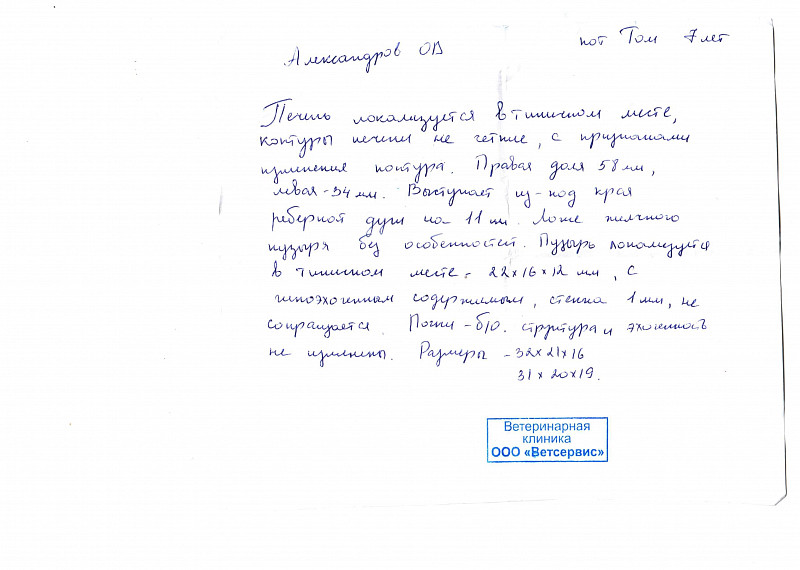 Александров ОВ
кот Том 7 лет
Печень локализуется в типичном месте,
контуры печени не четкие, с признаками
изменения контура. Правая доля 58 мм,
левая - 34 мм. Выступает из-под края
реберной дуги на 11 мм. Ложе желчного
пузыря без особенностей. Пузырь локализуется
в типичном месте - 22х16х12 мм, с
гипоэхогенным содержимым, стенка 1 мм, не
сокращается. Почки - б/о. структура и эхогенность
не изменены. Размеры - 32х21х16
31х20х19.
Ветеринарная
клиника
ООО «Ветсервис»